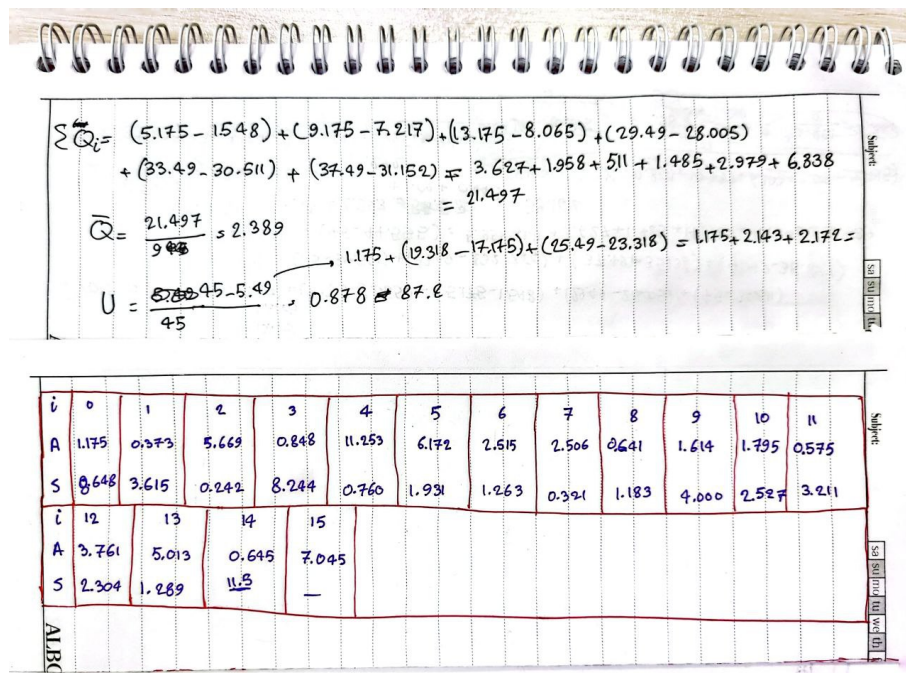 ΣQ̄i= (5.175-1.548)+(9.175-7.217)+(13.175-8.065)+(29.49-28.005)
+(33.49-30.511)+(37.49-31.152) = 3.627+1.958+5.11+1.485+2.979+6.838
= 21.497
Q̄= 21.497/9 = 2.389
1.175+(19.318-17.175)+(25.49-23.318) = 1.175+2.143+2.172=
U = 45-5.49/45 = 0.878 = 87.8
Subject:
sa su mo tu
i 0 1 2 3 4 5 6 7 8 9 10 11
A 1.175 0.373 5.669 0.848 11.253 6.172 2.515 2.506 0.641 1.614 1.795 0.575
S 8.648 3.615 0.242 8.244 0.760 1.931 1.263 0.321 1.183 4.000 2.527 3.211
i 12 13 14 15
A 3.761 5.013 0.645 7.045
S 2.304 1.289 11.5 —
Subject:
sa su mo tu we th
ALBO